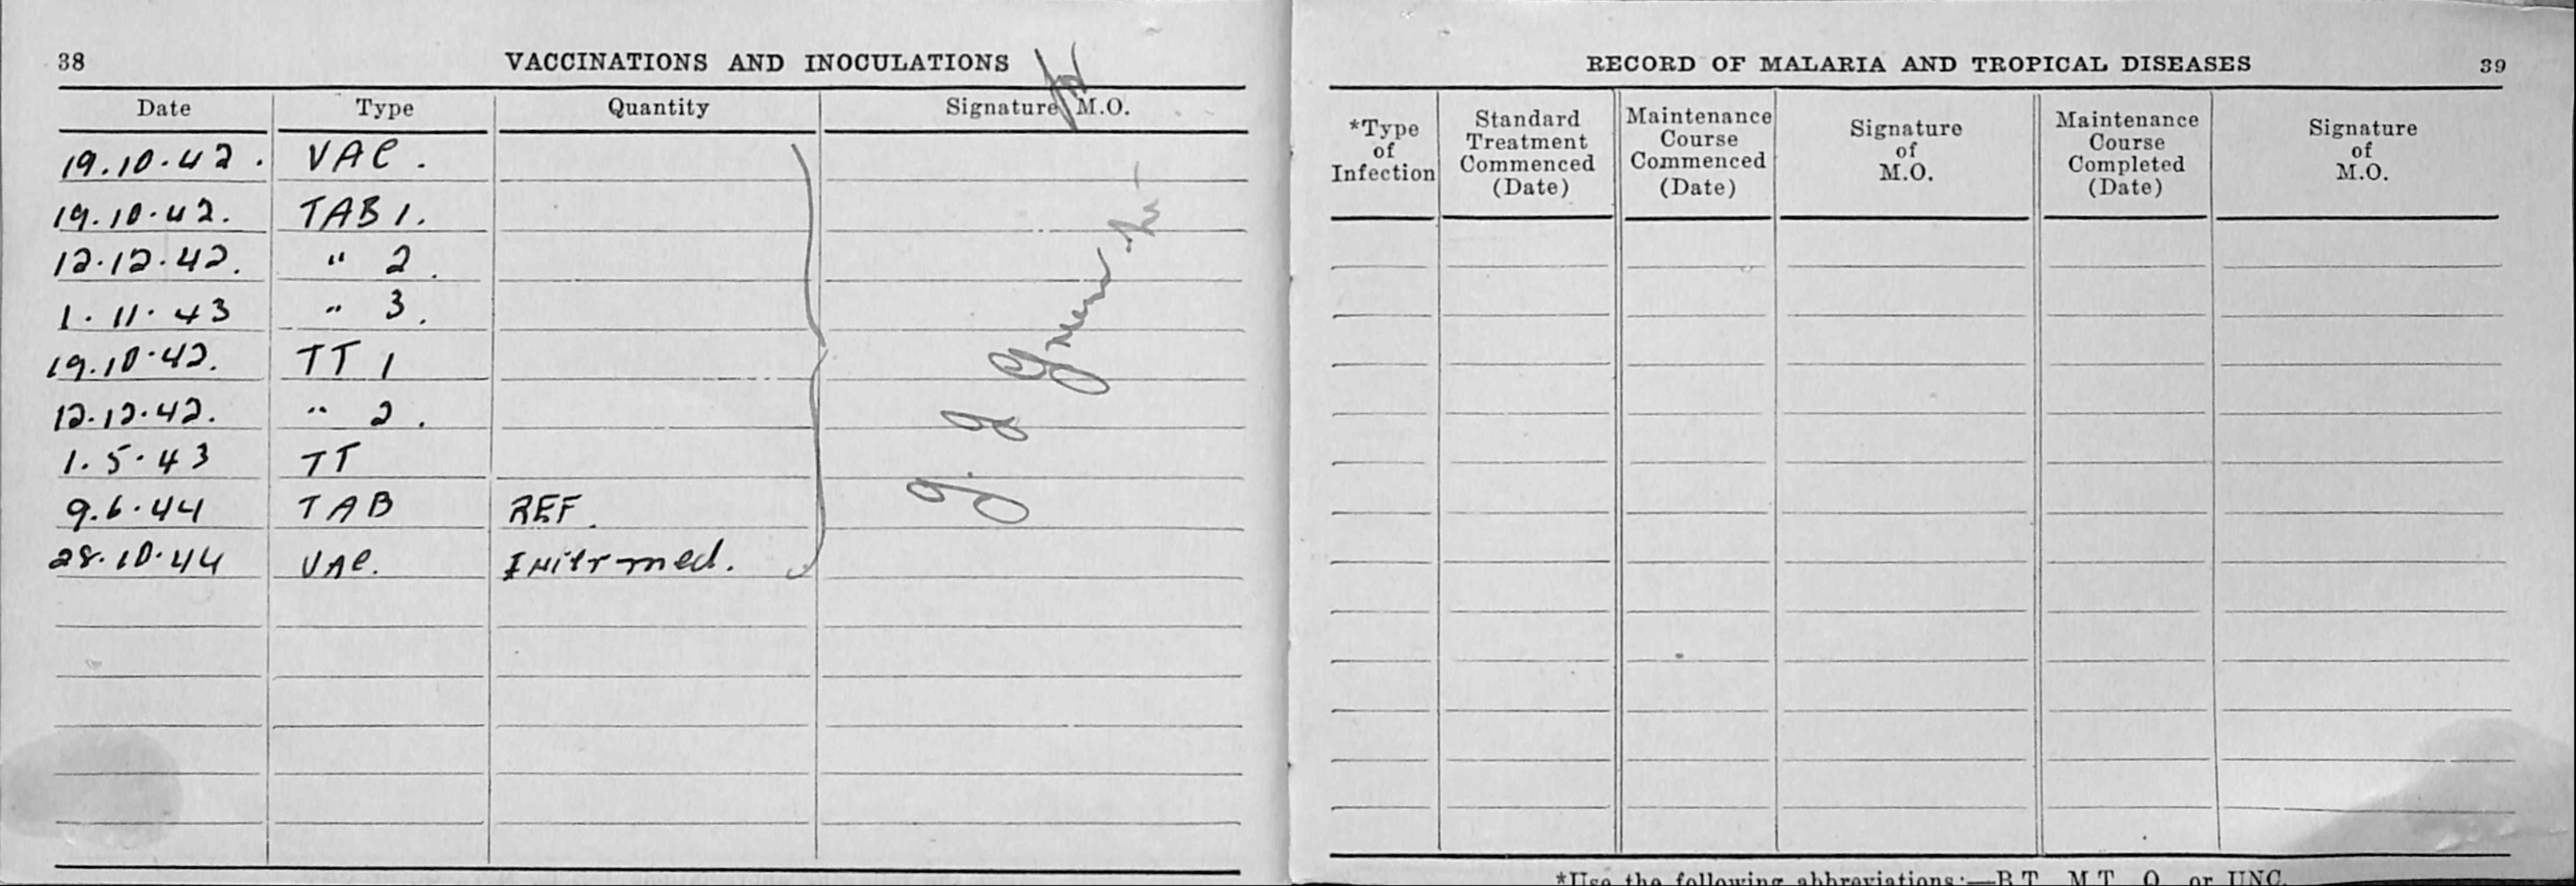 38 VACCINATIONS AND INOCULATIONS
Date Type Quantity Signature M.O.
19.10.42. VAC.
19.10.42. TAB 1.
12.12.42. " 2.
1.11.43 " 3.
19.10.42. TT 1
12.12.42. " 2.
1.5.43 TT
9.6.44 TAB REF.
28.10.44 VAC.
RECORD OF MALARIA AND TROPICAL DISEASES 39
*Type of Infection
Standard Treatment Commenced (Date)
Maintenance Course Commenced (Date)
Signature of M.O.
Maintenance Course Completed (Date)
Signature of M.O.
*Use the following abbreviations:—B.T. M.T. Q. or UNC.